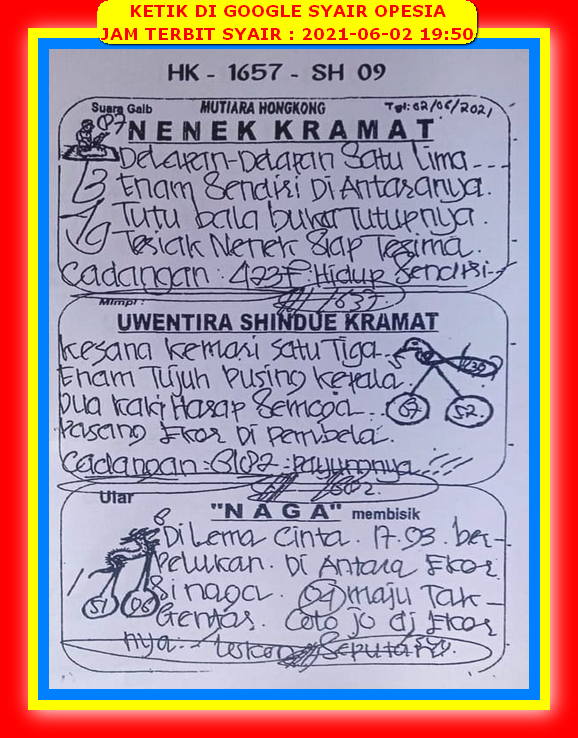 KETIK DI GOOGLE SYAIR OPESIA
JAM TERBIT SYAIR : 2021-06-02 19:50
HK - 1657 - SH 09
Suara Gaib MUTIARA HONGKONG Tgl: 02/06/2021
NENEK KRAMAT
Delapan-Delapan Satu Lima
Enam Sendiri Di Antaranya.
Tutu bala buka Tutupnya.
Teriak Nenek Siap Terima.
Cadangan : 4237 : Hidup Sendiri
1637.
Mimpi :
UWENTIRA SHINDUE KRAMAT
Kesana Kemari Satu Tiga
Enam Tujuh Pusing Kepala.
Dua Kaki Harap Semoga
67 52.
Pasang Ekor Di Pembela.
Cadangan : 6102 : Payungnya
1602.
Ular
"NAGA" membisik
8
Dilema Cinta. 17.93. ber-
Pelukan. Di Antara Ekor
Sinaga. 04 maju Tak
51 06
Gentar. Coto jo dj Ekor
nya. Seputar